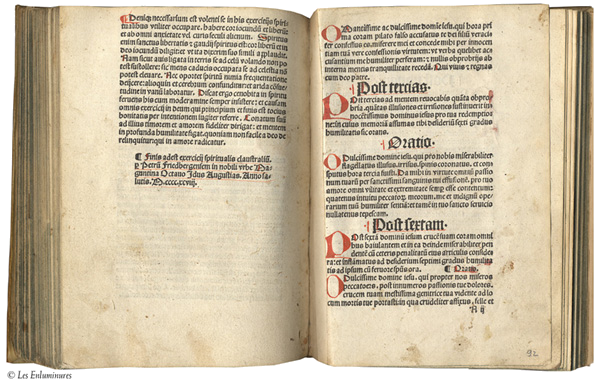 ¶ Deniq; necessarium est volenti se in his exercitijs spiri
tualibus vtiliter occupare. habere cor iocundū et liberū:
et ab omni anxietate vel cura seculi alienum. Spiritus
enim sanctus libertatis ⁊ gaudij spiritus est: cor liberū et in
deo iocundū diligit:
Nam sicut auis ligata in terra se ad celū volando non po
test sustollere: sic mens caduca occupata se ad celestia nō
potest eleuare. Nec oportet spiritū nimia frequentatione
deprimere: alioquin et cerebrum consumitur: et arida cōsue
tudine in vanū laboratur. Discat ergo
fructus his cum moderamine semper insistere: et causam
omnis exercitij in deum qui principium et finis est totius
bonitatis per intentionem iugiter referre. Conatum suū
ad illius timorem et amorem fideliter dirigat: et mentem
in profunda humilitate figat. quoniam non facile a deo de
relinquitur qui in amore radicatur.
¶ Finis adest exercitij spiritualis claustraliū.
per Petrū Friedbergensem in nobili vrbe Ma
guntina Octauo Idus Augustias. Anno sa
lutis. M.cccc.xcviij.
O Amantissime ac dulcissime domine iesu. qui hora pri
ma coram pilato falso accusatus te dei filiū veraci
ter confessus es. miserere mei et concede mihi per innocen
tiam tuā vere confessionis virtutem: et verbis asperis ac
cusantium me humiliter
interna mentis tranquillitate recedā. Qui viuis ⁊ regnas
cum deo patre.
¶ Post tercias.
Post tercias ad mentem reuocabis quāta obpro
bria. quātas illusiones et irrisiones sustinuerit in
nocentissimus dominus iesus pro tua redemptio
ne: in cuius memoriā assimas tibi desideriū sexti gradus
humilitatis sic orans.
¶ Oratio.
O Dulcissime domine iesu. qui pro nobis miserabiliter
flagellatus illusus. irrisus. spinis coronatus. et con
sputus hora tercia fuisti. Da mihi in virtute omniū passio
num tuarū per sanctissimi sanguinis tui effusionē. pro tuo
amore omni vilitate et extremitate semper esse contentum:
quatenus intuitu peccatorum meorum. me et indignū ope
rarium tuū humiliter sentiā: et tamē in tuo sancto seruicio
nullatenus tepescam.
¶ Post sextam.
Post sextā dominū iesum crucē suam coram omni
bus baiulantem et in ea deinde miserabiliter pen
dentē cū ceteris penalitatibus eius articulis conside
ra: et inflāmatus ad desiderium septimi gradus humilita
tis ad ipsum cū feruore spūs ora. ¶ Oratio.
O Dulcissime domine iesu. qui propter nos miseros
peccatores. post innumeros passionis tue dolores.
crucem tuam mestissima genitrice tua vidente ad lo
cum mortis tue portasti: in qua crudeliter affixus. felle et
A ij
92
© Les Enluminures